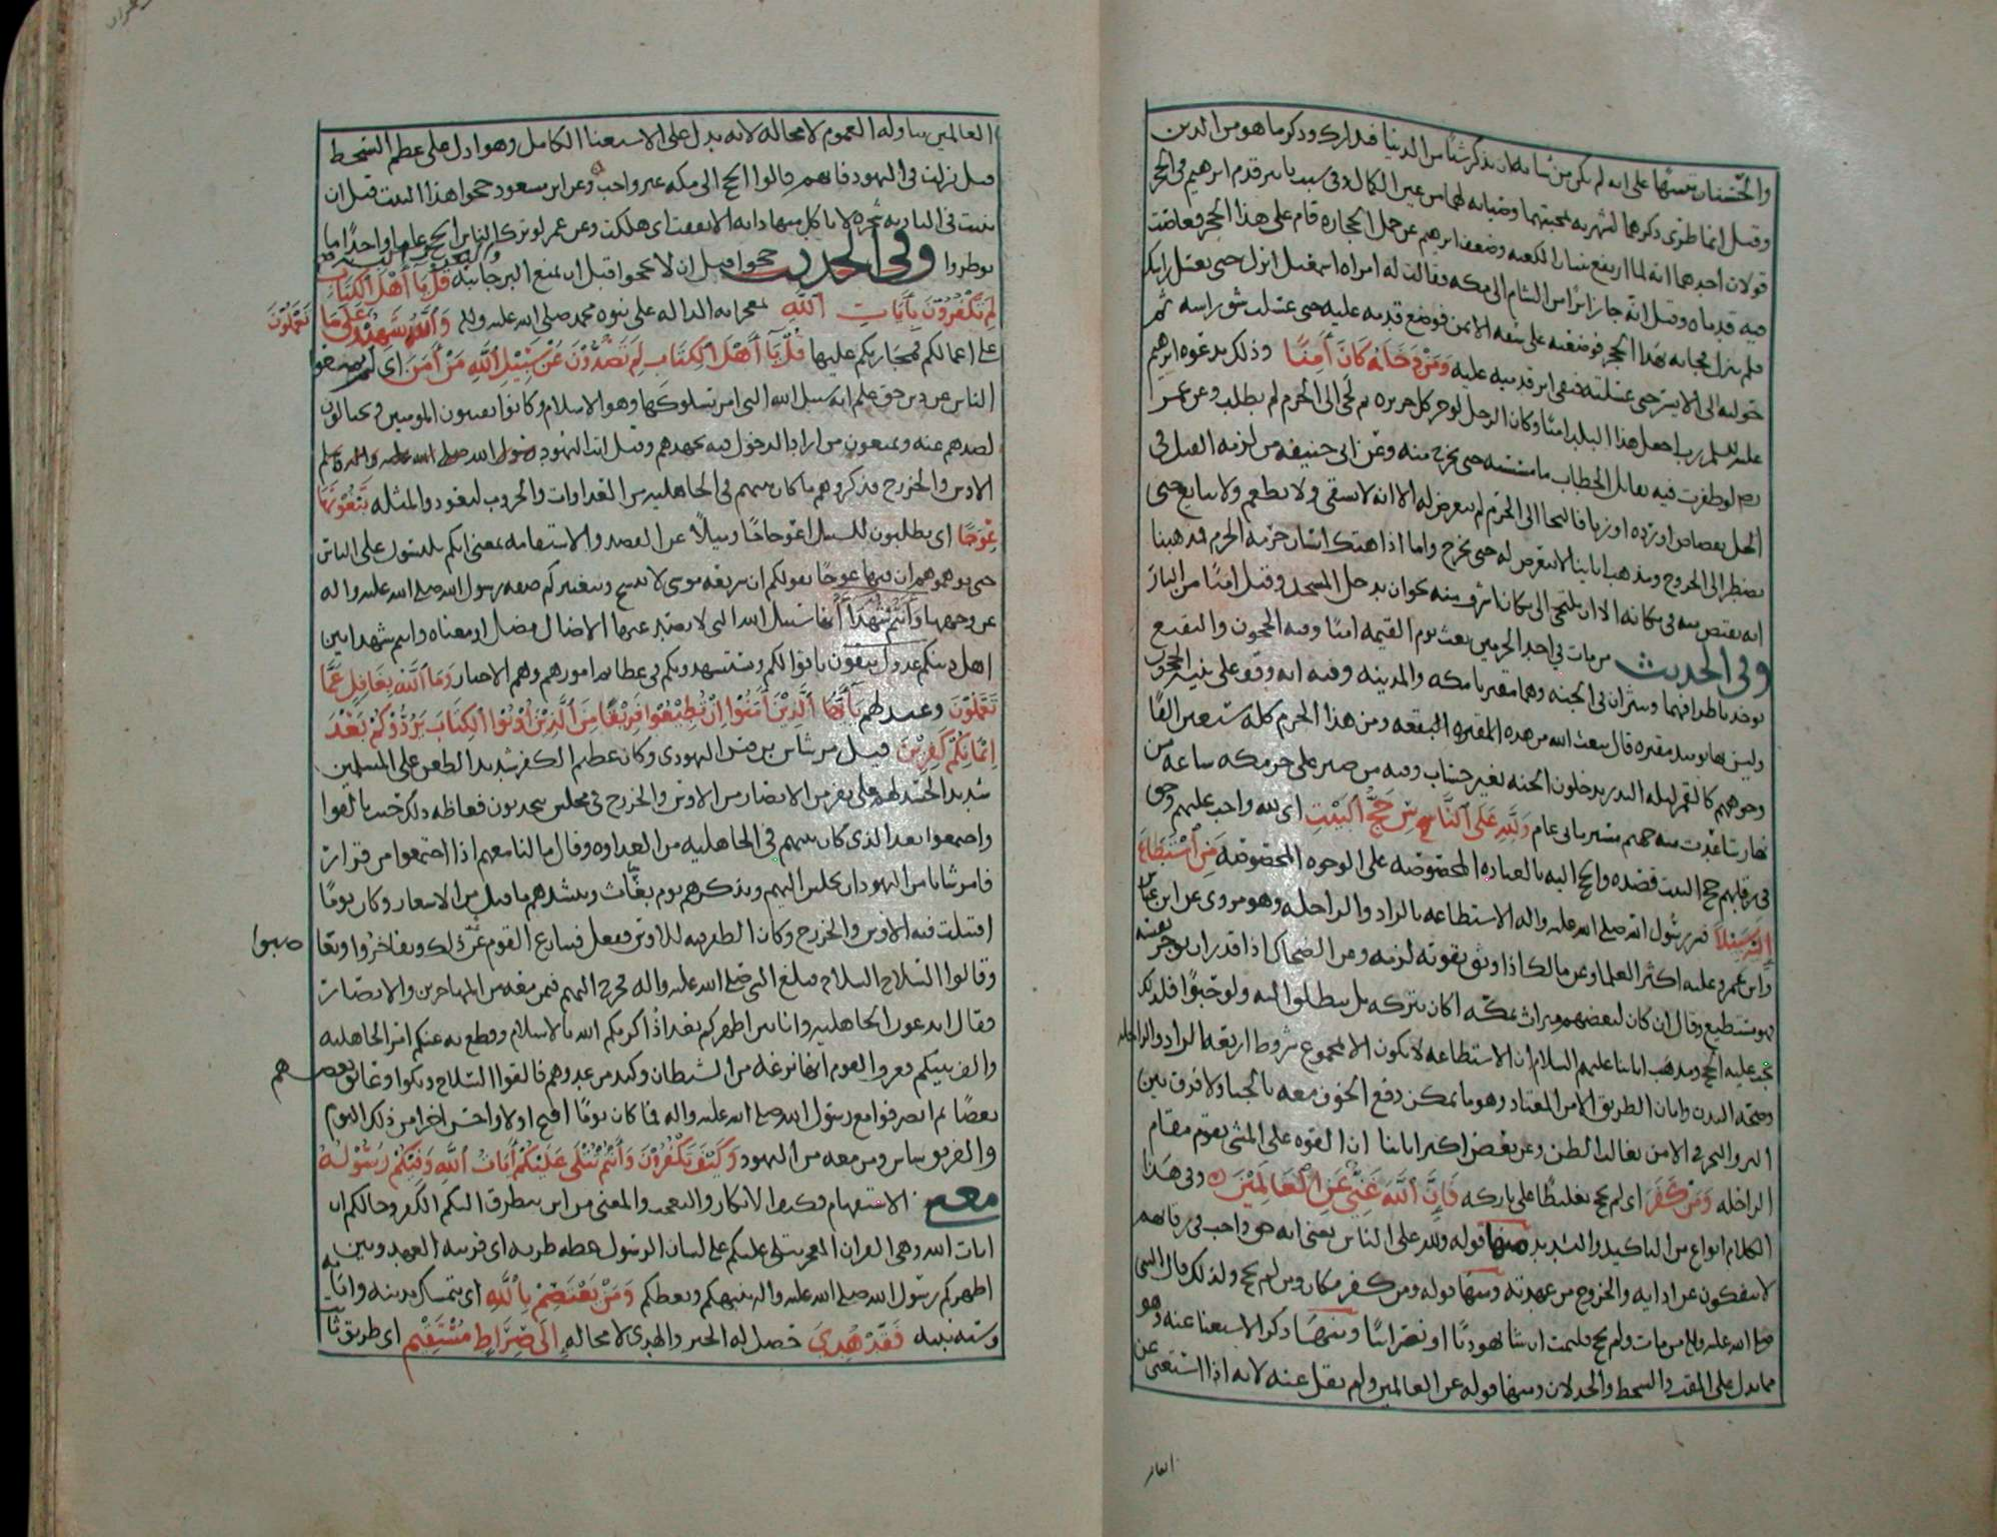 والحسنان تنبيها على انه لم يكن من شانه ان يذكر شيئا من الدنيا فدارك وذكر ما هو من الدين
وقيل انما طوى ذكرهما لشهرته بمحبتهما وفي سبب تاثير قدم ابرهيم في الحجر
قولان احدهما انه لما ارتفع بنيان الكعبه وضعف ابرهيم عن حمل الحجاره قام على هذا الحجر فغاصت
فيه قدماه وقيل انه جا زائرا من الشام الى مكه فقالت له امراه اسمعيل انزل حتى نغسل راسك
فلم ينزل فجاته بهذا الحجر فوضعته على شقه الايمن فوضع قدمه عليه حتى غسلت شق راسه ثم
حولته الى الايسر حتى غسلته فبقي اثر قدميه عليه ومن دخله كان آمنا وذلك بدعوه ابرهيم
عليه السلم رب اجعل هذا البلد امنا وكان الرجل لو جر كل جريره ثم لجى الى الحرم لم يطلب وعن عمر
لو ظفرت فيه بقاتل الخطاب ما مسسته حتى يخرج منه وعن ابي حنيفه من لزمه القتل في
الحل بقصاص او رده او زنا فالتجا الى الحرم لم يتعرض له الا انه لا يسقى ولا يطعم ولا يبايع حتى
يضطر الى الخروج ومذهب ابائنا لا يتعرض له حتى يخرج واما اذا هتك انسان حرمه الحرم فمذهبنا
انه يقتص منه في مكانه الا ان يلتجي الى مكان اشرف منه نحو ان يدخل المسجد وقيل امنا من النار
وفي الحديث من مات في احد الحرمين بعث يوم القيمه امنا وفيه الحجون والبقيع
يوخذ باطرافهما وينثران في الجنه وهما مقبرتا مكه والمدينه وفيه انه وقف على ثنيه الحجون
وليس بها يومئذ مقبره قال يبعث الله من هذه المقبره البقعه ومن هذا الحرم كله سبعين الفا
وجوههم كالقمر ليله البدر يدخلون الجنه بغير حساب وفيه من صبر على حر مكه ساعه من
نهار تباعدت منه جهنم مسير مائتي عام ولله على الناس حج البيت اي لله واجب عليهم وحق
في رقابهم حج البيت قصده والحج اليه بالعباده المخصوصه على الوجوه المخصوصه من استطاع
اليه سبيلا فسر رسول الله صلى الله عليه واله الاستطاعه بالزاد والراحله وهو مروي عن ابن عباس
وابن عمر وعليه اكثر العلما وعن مالك اذا وثق بقوته لزمه وعن الضحاك اذا قدر ان يوجر نفسه
فهو مستطيع وقال ان كان لبعضهم ميراث بمكه اكان يتركه بل ينطلق اليه ولو حبوا فلذلك
يجب عليه الحج ومذهب ابائنا عليهم السلام ان الاستطاعه لا تكون الا لمجموع شروط اربعه الزاد والراحله
وصحه البدن وامان الطريق الامر المعتاد وهو ما يمكن دفع الخوف معه ولا فرق بين
البر والبحر في الامن بغالب الظن وعن بعض اكبر ابائنا ان القوه على المشي يقوم مقام
الراحله ومن كفر اي لم يحج تغليظا على تاركه فان الله غني عن العالمين وفي هذا
الكلام انواع من التاكيد والتشديد منها قوله ولله على الناس يعني انه حق واجب في رقابهم
لا ينفكون عن ادايه والخروج من عهدته ومنها قوله ومن كفر مكان ومن لم يحج ولذلك قال النبي
صلى الله عليه واله من مات ولم يحج فليمت ان شا يهوديا او نصرانيا ومنها ذكر الاستغنا عنه وهو
مما يدل على المقت والسخط والخذلان ومنها قوله عن العالمين ولم يقل عنه لانه اذا استغنى عن
العالمين تناوله العموم لا محاله لانه يدل على الاستغنا الكامل وهو ادل على عظم السخط
قيل نزلت في اليهود فانهم قالوا الحج الى مكه غير واجب وعن ابن مسعود حجوا هذا البيت قبل ان
ينبت في الباديه شجره لا ياكل منها دابه الا نفقت اي هلكت وعن عمر لو ترك الناس الحج عاما واحدا ما
نوظروا وفي الحديث حجوا قبل ان لا تحجوا قبل ان يمنع البر جانبه قل يا اهل الكتاب
لم تكفرون بآيات الله معجزاته الداله على نبوه محمد صلى الله عليه واله والله شهيد على ما تعملون
على اعمالكم فمجازيكم عليها قل يا اهل الكتاب لم تصدون عن سبيل الله من آمن اي لم تمنعوا
الناس عن دين حق علم انه سبيل الله التي امر بسلوكها وهو الاسلام وكانوا يفتنون المومنين ويحتالون
لصدهم عنه ويمنعون من اراد الدخول فيه بجهدهم وقيل اتت اليهود
الاوس والخزرج فذكروهم ما كان بينهم في الجاهليه من العداوات والحروب ليعودوا لمثله تبغونها
عوجا اي يطلبون للسبيل اعوجاجا وميلا عن القصد والاستقامه بمعنى انكم تلبسون على الناس
حتى توهموهم ان فيها عوجا بقولكم ان شريعه موسى لا تنسخ وبتغييركم صفه رسول الله صلى الله عليه واله
عن وجهها وانتم شهدا انها سبيل الله التي لا يصد عنها الا ضال مضل او معناه وانتم شهدا بين
اهل دينكم عدول يثقون باقوالكم ويستشهدونكم في عظائم امورهم وهم الاحبار وما الله بغافل عما
تعملون وعيد لهم يا ايها الذين آمنوا ان تطيعوا فريقا من الذين اوتوا الكتاب يردوكم بعد
ايمانكم كفرين قيل مر شاس بن قيس اليهودي وكان عظيم الكفر شديد الطعن على المسلمين
شديد الحسد لهم على نفر من الانصار من الاوس والخزرج في مجلس يتحدثون فغاظه ذلك حيث تالفوا
واجتمعوا بعد الذي كان بينهم في الجاهليه من العداوه وقال ما لنا معهم اذا اجتمعوا من قرار
فامر شابا من اليهود ان يجلس اليهم ويذكرهم يوم بغاث وينشدهم ما قيل من الاشعار وكان يوما
اقتتلت فيه الاوس والخزرج وكان الظفر فيه للاوس ففعل فتنازع القوم عند ذلك وتفاخروا وتغاضبوا
وقالوا السلاح السلاح فبلغ النبي صلى الله عليه واله فخرج اليهم فيمن معه من المهاجرين والانصار
فقال اتدعون الجاهليه وانا بين اظهركم بعد اذ اكرمكم الله بالاسلام وقطع به عنكم امر الجاهليه
والف بينكم فعرف القوم انها نزغه من الشيطان وكيد من عدوهم فالقوا السلاح وبكوا وعانق بعضهم
بعضا ثم انصرفوا مع رسول الله صلى الله عليه واله فما كان يوما اقبح اولا واحسن اخرا من ذلك اليوم
والفريق شاس ومن معه من اليهود وكيف تكفرون وانتم تتلى عليكم آيات الله وفيكم رسوله
معنى الاستفهام فيه الانكار والتعجب والمعنى من اين يتطرق اليكم الكفر وحالكم ان
ايات الله وهي القران المعجز تتلى عليكم على لسان الرسول غضه طريه اي قريبه العهد وبين
اظهركم رسول الله صلى الله عليه واله ينبهكم ويعظكم ومن يعتصم بالله اي يتمسك بدينه واياته
وسنه نبيه فقد هدي حصل له الخير والهدى لا محاله الى صراط مستقيم اي طريق ثابت